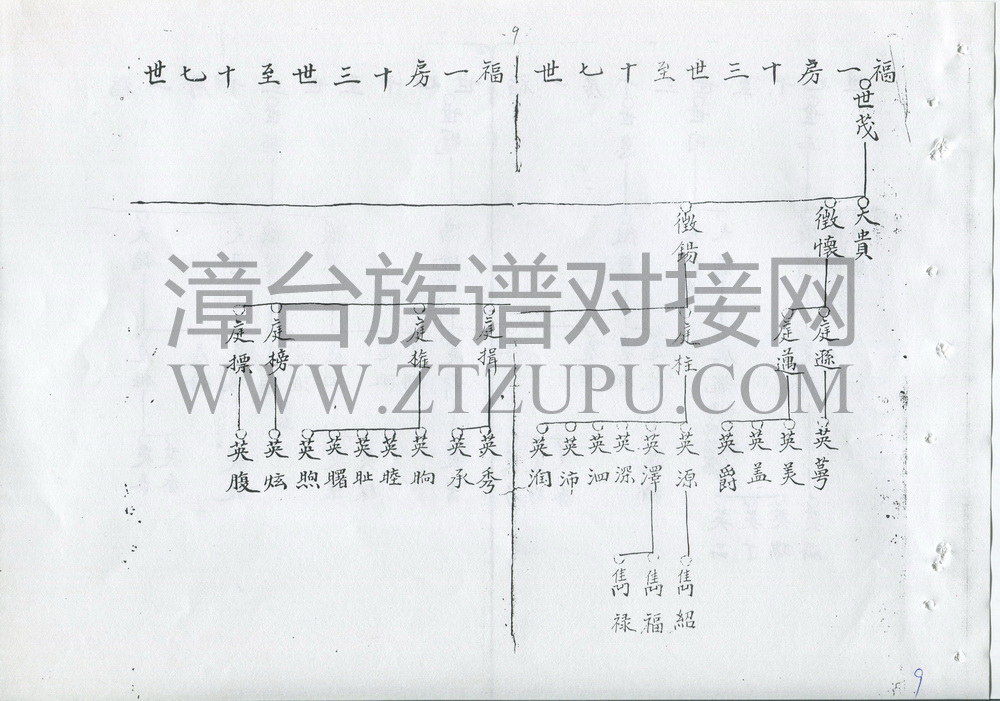 9
福一房十三世至十七世
福一房十三世至十七世
世茂
天貴
徵懷
徵錫
庭遜
庭邁
庭柱
庭揖
庭權
庭榜
庭標
英萼
英美
英盖
英爵
英源
英澤
英深
英泗
英沛
英润
英秀
英承
英晌
英睦
英眦
英曙
英煦
英炫
英腹
雋紹
雋福
雋禄
漳台族谱对接网
WWW.ZTZUPU.COM
9